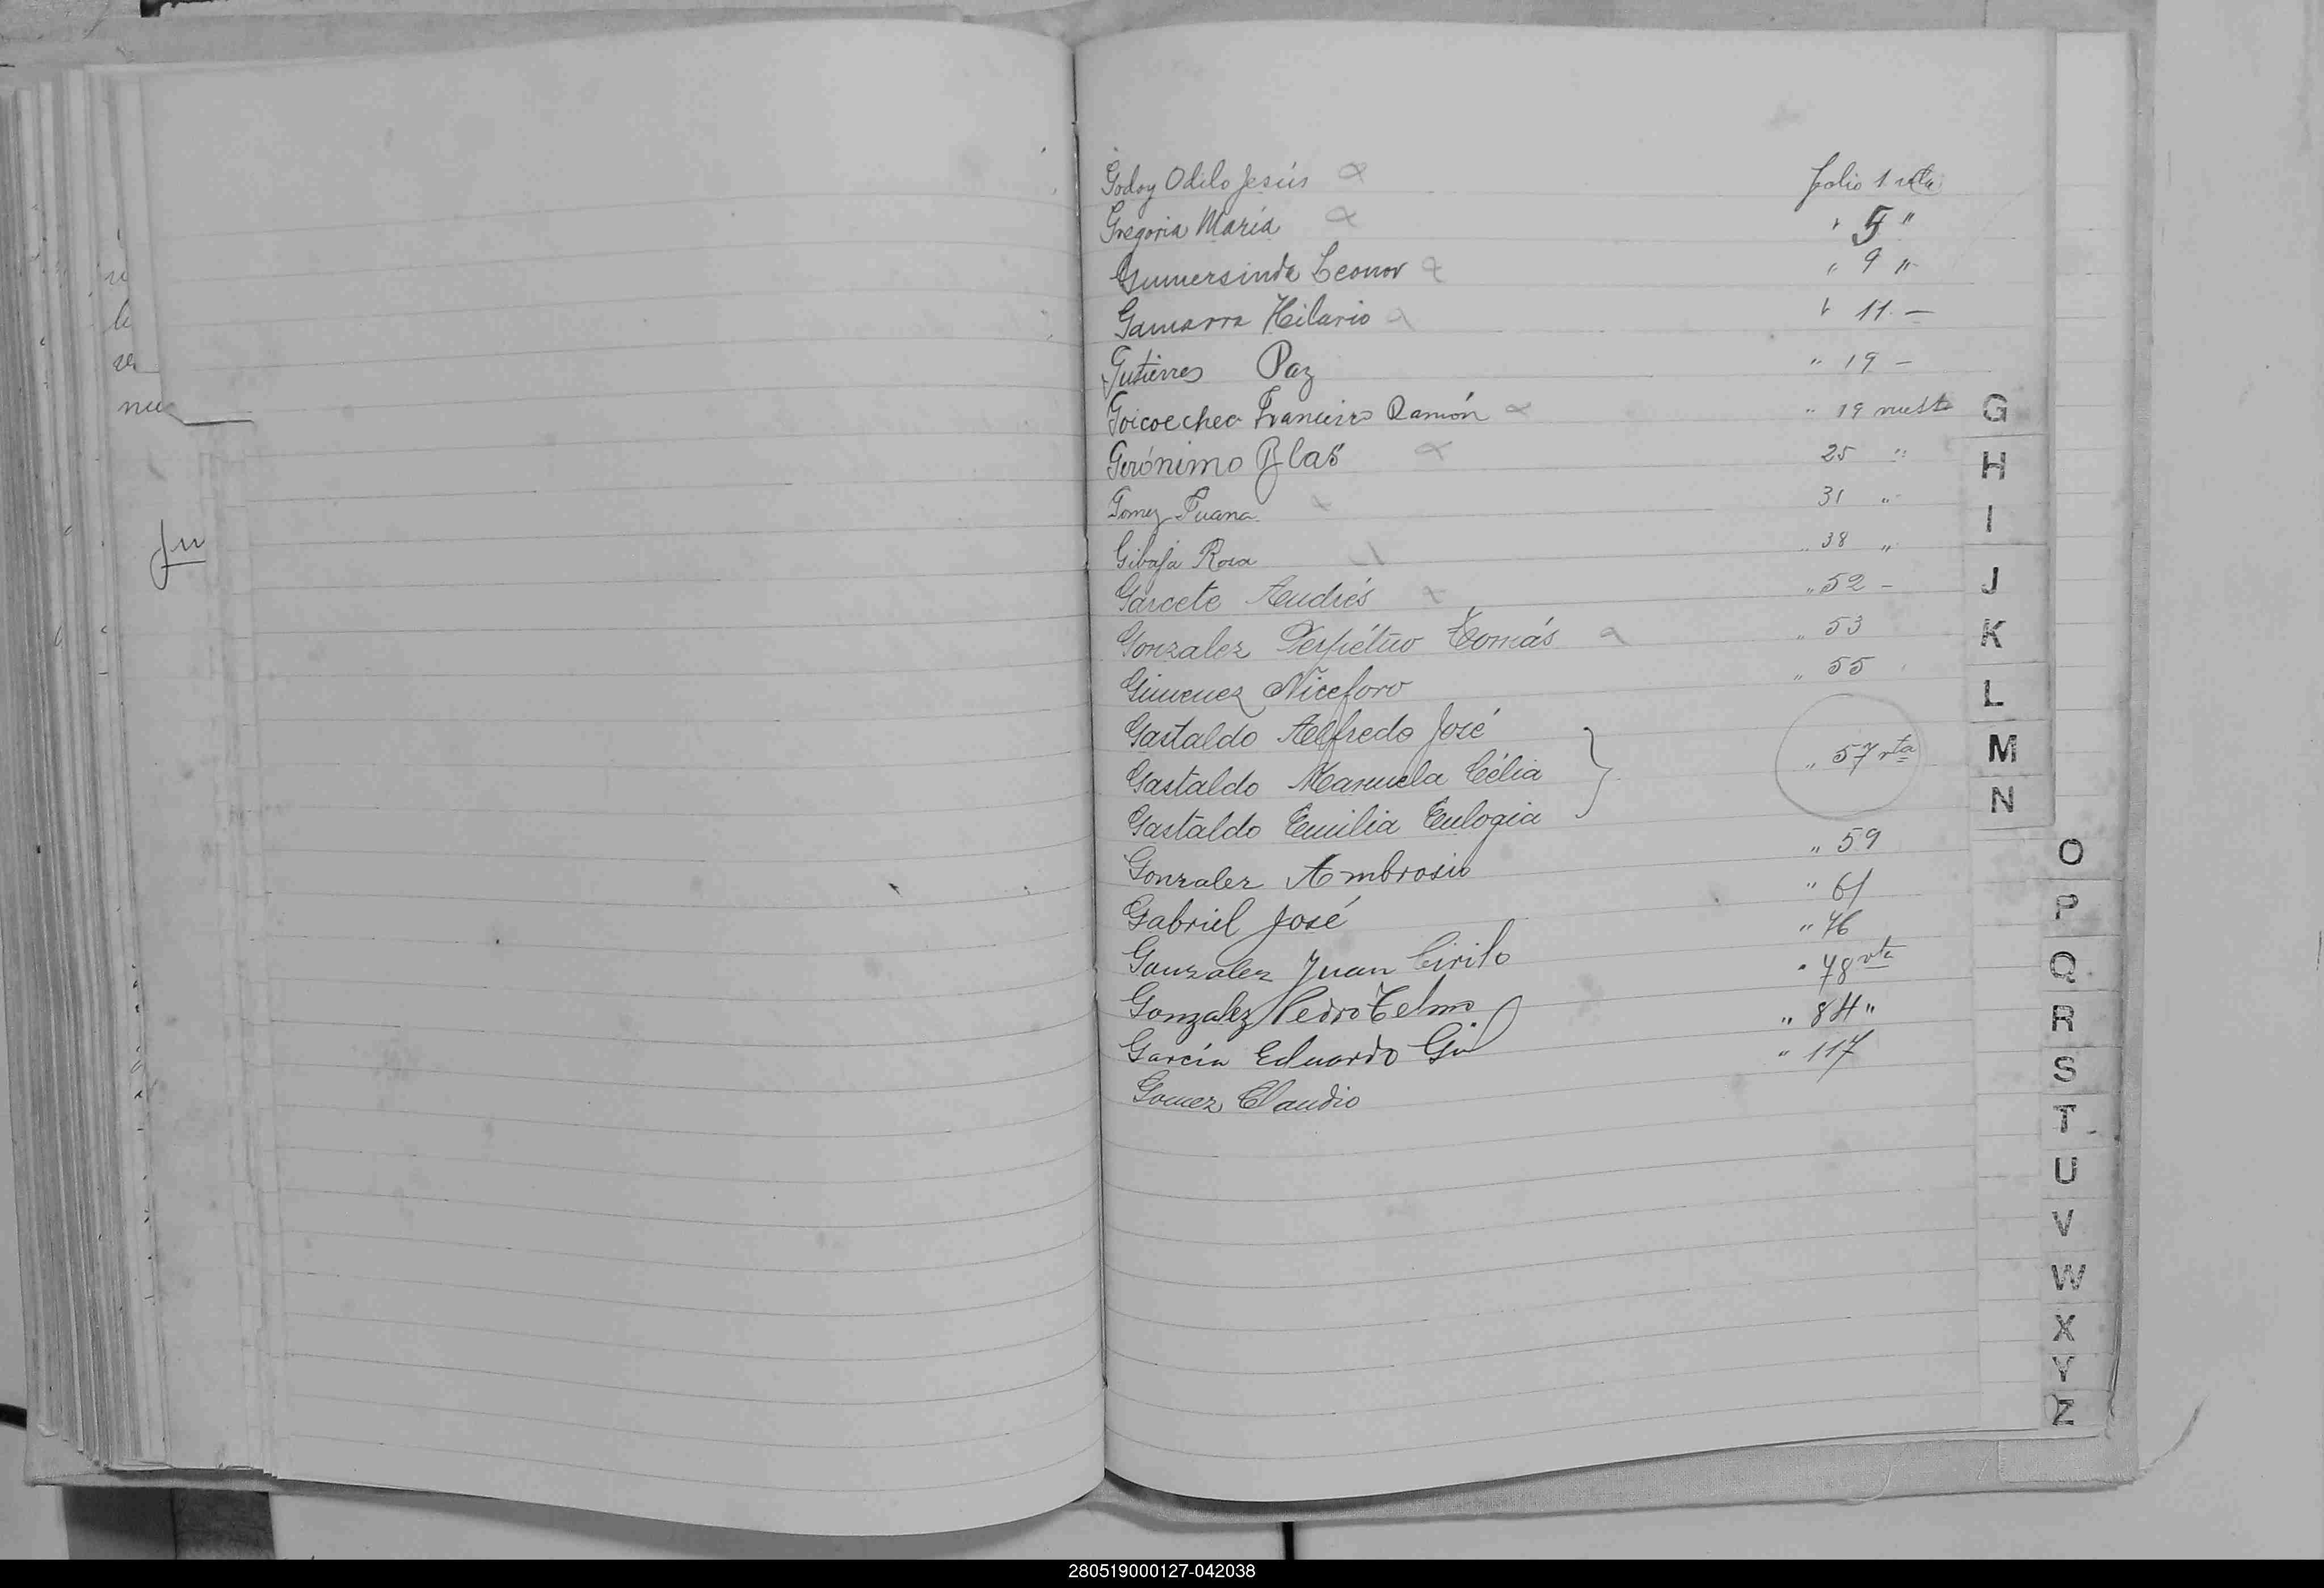 Godoy Odilo Jesús folio 1 vta
Gregoria María " 5 "
Gumersinda Leonor " 9 "
Gamarra Hilario " 11 —
Gutierres Paz " 19 —
Goicoechea Francisco Ramón " 19 vuelta
Gerónimo Blas 25 "
Gomez Juana 31 "
Gibaja Rosa " 38 "
Garcete Andrés " 52 —
Gonzalez Perpétuo Tomás " 53
Gimenez Niceforo " 55
Gastaldo Alfredo José
Gastaldo Manuela Célia } " 57 vta
Gastaldo Emilia Eulogia
Gonzalez Ambrosio " 59
Gabriel José " 61
Gonzalez Juan Cirilo " 76
Gonzalez Pedro Telmo " 78 vta
García Eduardo Gil " 84 "
Gomez Claudio " 117
G
H
I
J
K
L
M
N
O
P
Q
R
S
T
U
V
W
X
Y
Z
280519000127-042038